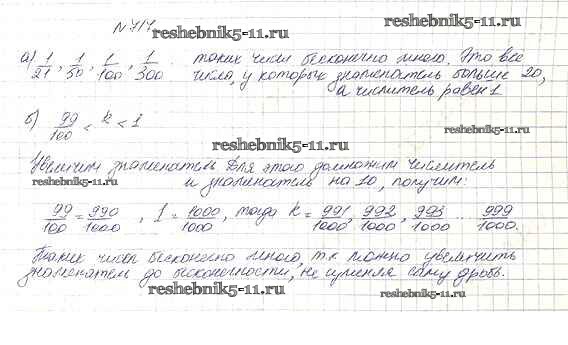 N 717
reshebnik5-11.ru
а) 1/21, 1/50, 1/100, 1/300 таких чисел бесконечно много. Это все
числа, у которых знаменатель больше 20,
reshebnik5-11.ru
а числитель равен 1
б) 99/100 < k < 1
reshebnik5-11.ru
reshebnik5-11.ru
Увеличим знаменатель для этого домножим числитель
reshebnik5-11.ru
и знаменатель на 10, получим:
99/100 = 990/1000, 1 = 1000/1000, тогда k = 991/1000, 992/1000, 993/1000 ... 999/1000.
reshebnik5-11.ru
Таких чисел бесконечно много, т.к можно увеличить
знаменатель до бесконечности, не изменяя саму дробь.
reshebnik5-11.ru
reshebnik5-11.ru